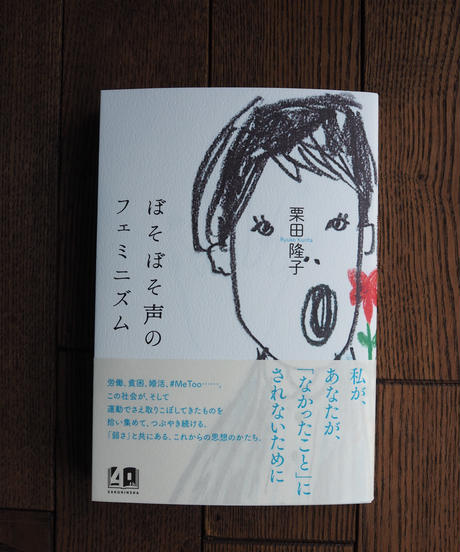 ぼそぼそ声の
フェミニズム
栗田隆子
Ryuko Kurita
私が、
あなたが、
「なかったこと」に
されないために
労働、貧困、婚活、#MeToo……。
この社会が、そして
運動でさえ取りこぼしてきたものを
拾い集めて、つぶやき続ける。
「弱さ」と共にある、これからの思想のかたち。
SAKUHINSHA